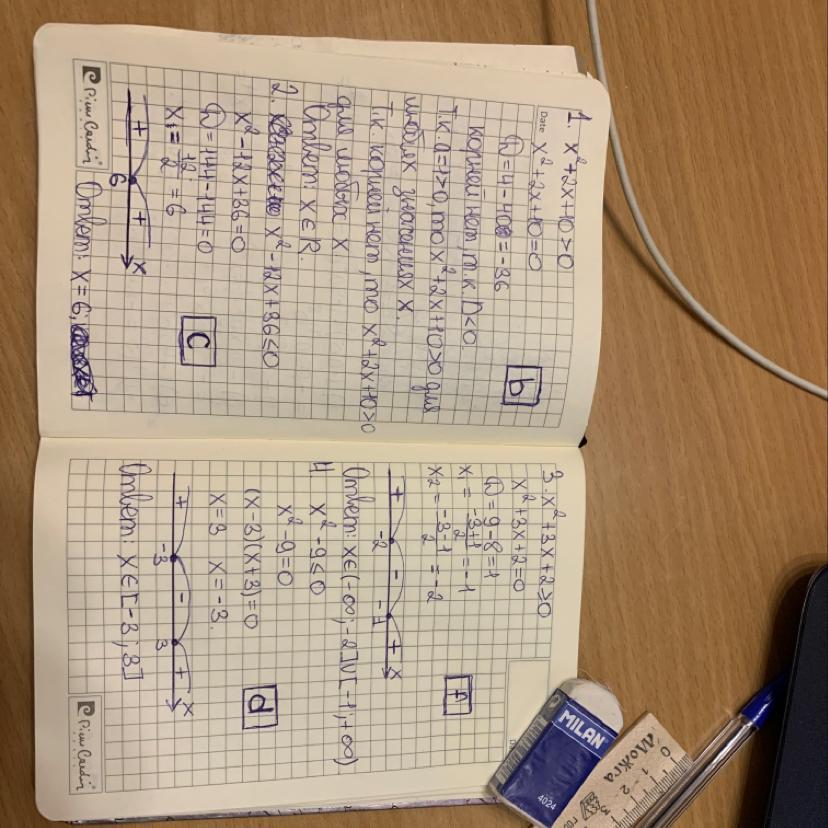 Date
1. x²+2x+10>0
x²+2x+10=0
D=4-40=-36
корней нет, т.к. D<0.
т.к. a=1>0, то x²+2x+10>0 для
любых значениях x
т.к. корней нет, то x²+2x+10>0
для любых x.
Ответ: x∈R.
b
2. x²-12x+36≤0
x²-12x+36=0
D=144-144=0
x₁=12/2=6
c
+ + x
6
Ответ: x=6;
Pierre Cardin
3. x²+3x+2≥0
x²+3x+2=0
D=9-8=1
x₁=(-3+1)/2=-1
x₂=(-3-1)/2=-2
+ - + x
-2 -1
Ответ: x∈(-∞;-2]∪[-1;+∞)
4 x²-9≤0
x²-9=0
(x-3)(x+3)=0
x=3 x=-3.
d
+ - + x
-3 3
Ответ: x∈[-3;3]
Pierre Cardin
MILAN
4024
Можга
0 1 2 3